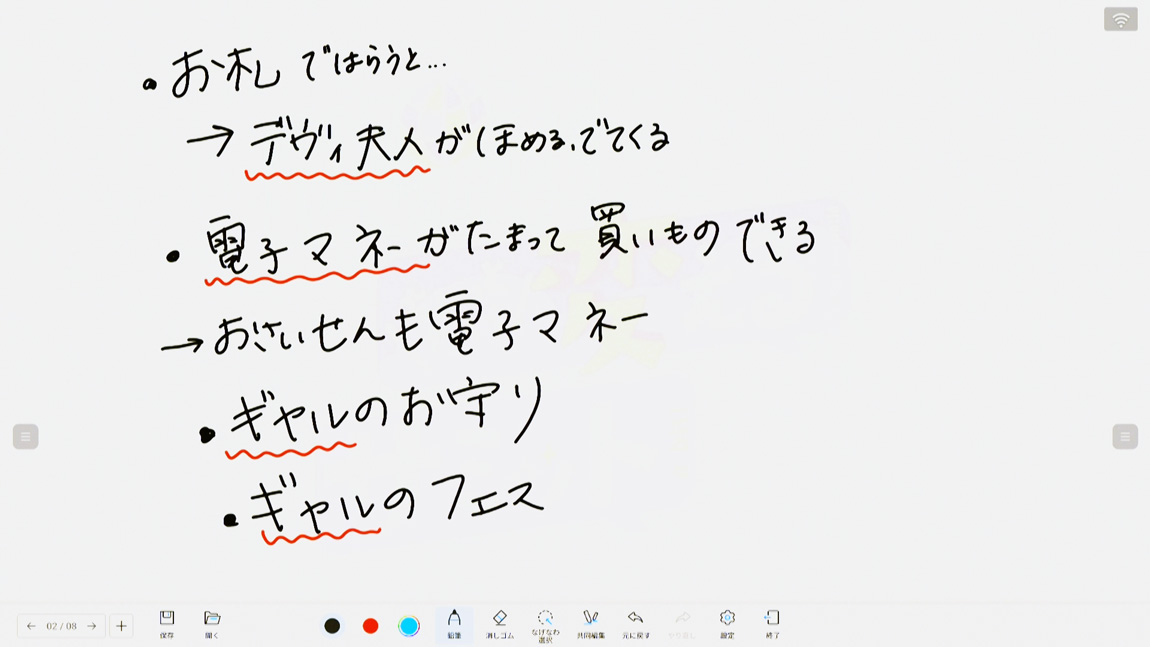 • お札ではらうと...
→ デヴィ夫人がほめる、でてくる
• 電子マネーがたまって買いものできる
→ おさいせんも電子マネー
• ギャルのお守り
• ギャルのフェス
← 02 / 08 → +
保存
開く
鉛筆
消しゴム
なげなわ
選択
共同編集
元に戻す
やり直し
設定
終了